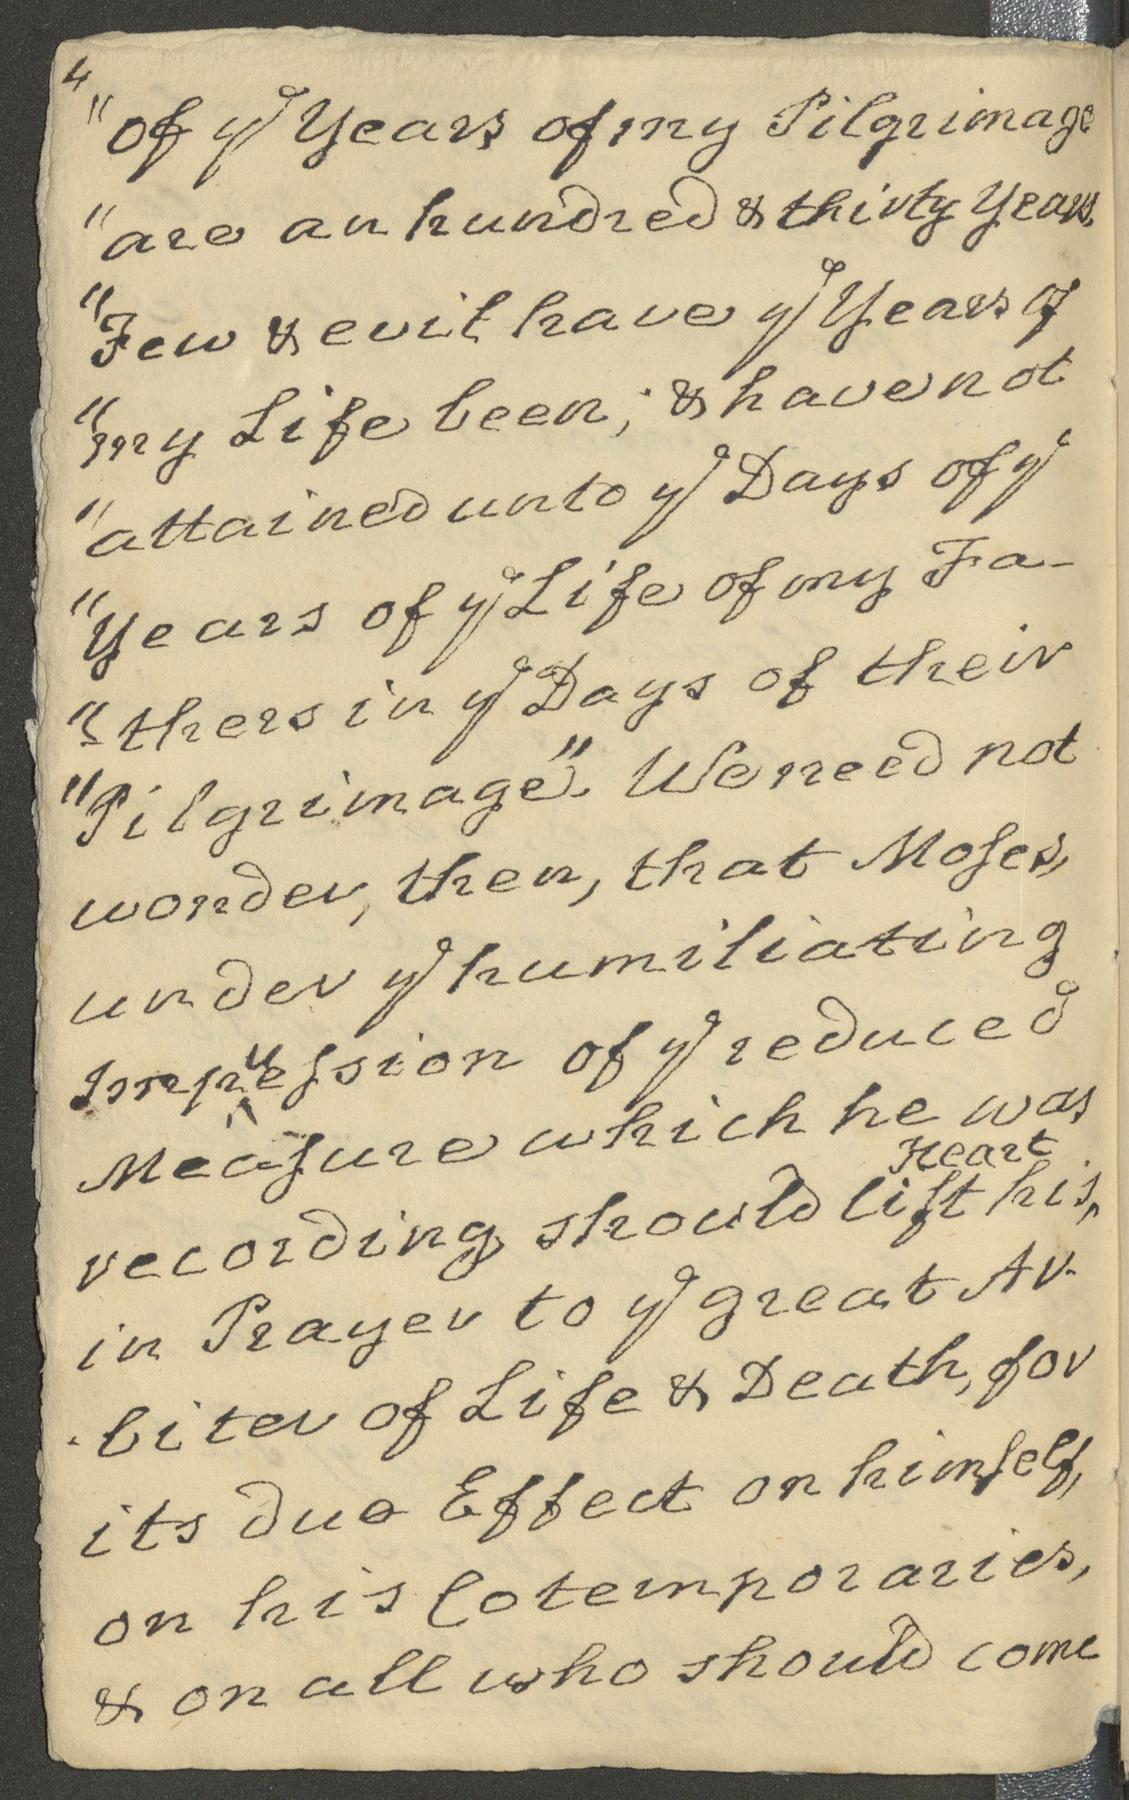 4
"of yᵉ Years of my Pilgrimage
"are an hundred & thirty Years
"Few & evil have yᵉ Years of
"my Life been; & have not
"attained unto yᵉ Days of yᵉ
"Years of yᵉ Life of my Fa-
"-thers in yᵉ Days of their
"Pilgrimage". We need not
wonder, then, that Moſes,
under yᵉ humiliating
Impreſsion of yᵉ reduced
Meaſure which he was
recording, should lift his ‸ Heart
in Prayer to yᵉ great Ar-
-biter of Life & Death, for
its due Effect on himſelf,
on his Cotemporaries,
& on all who should come